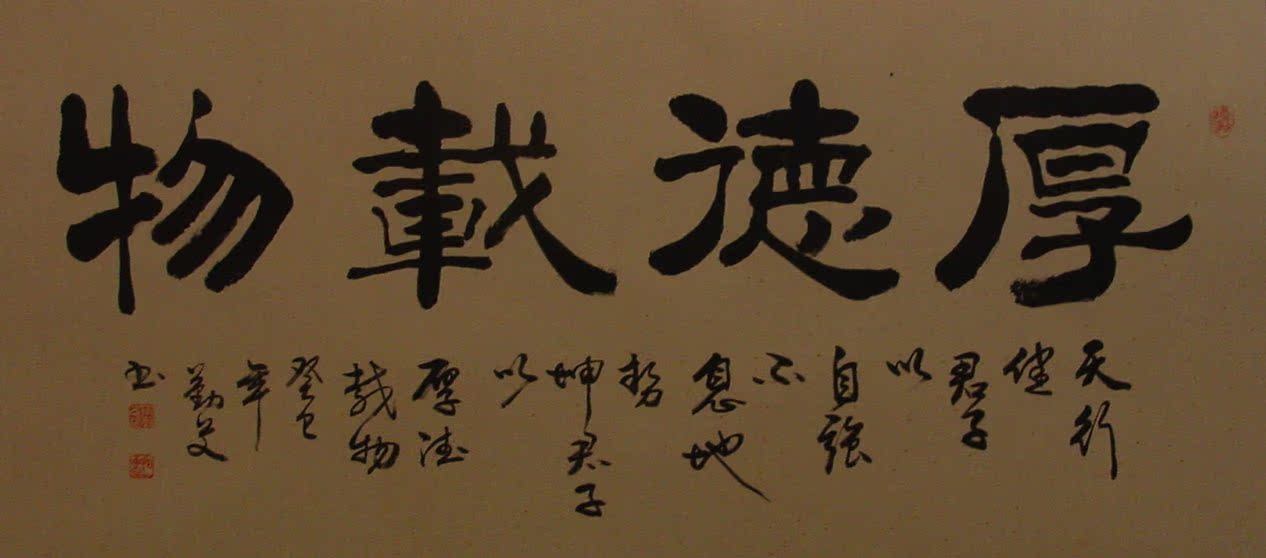 厚德載物
天行
健
君子
以
自強
不
息地
勢
坤君子
以
厚德
載物
癸巳
年
書